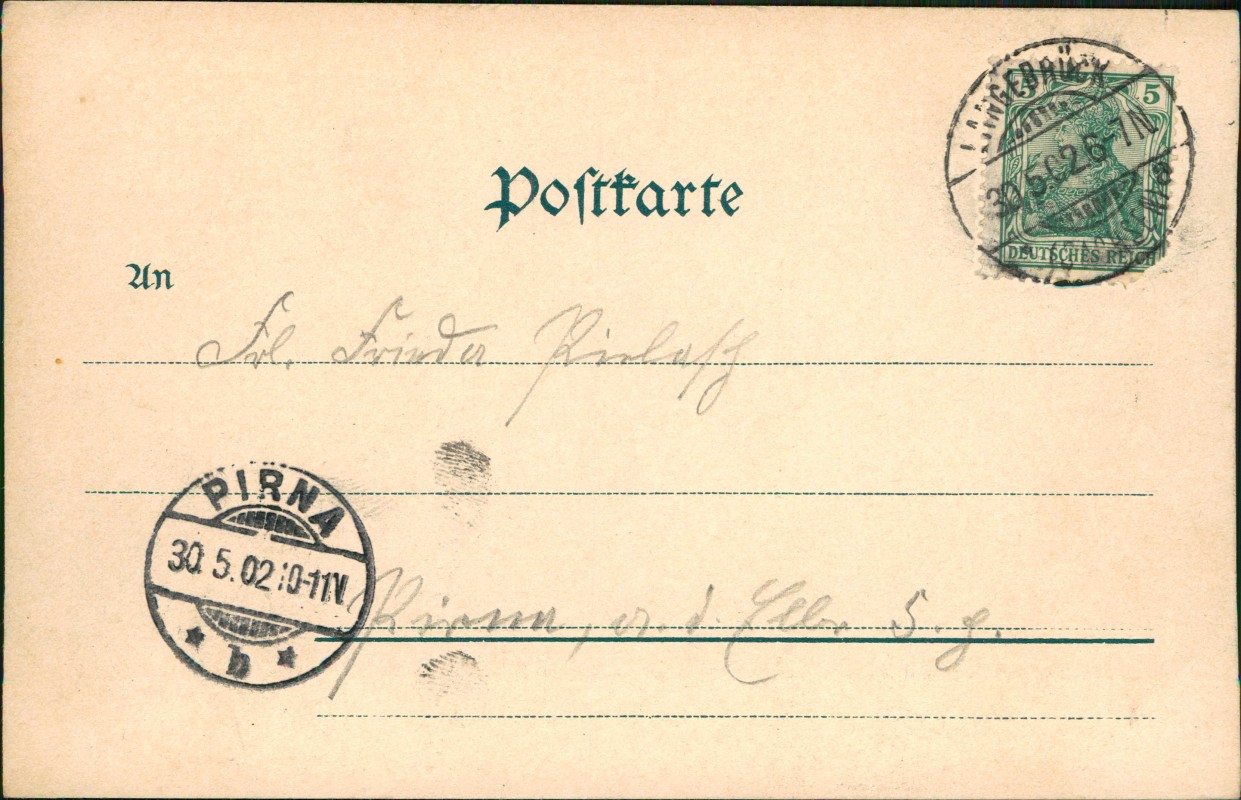 Postkarte
LANGEBRÜCK
30.5.02.6-7N.
(SACHSEN)a
5 5
DEUTSCHES REICH
An
Frl. Frieda
PIRNA
30.5.02.10-11N.
b
Pirna, a. d. Elbe